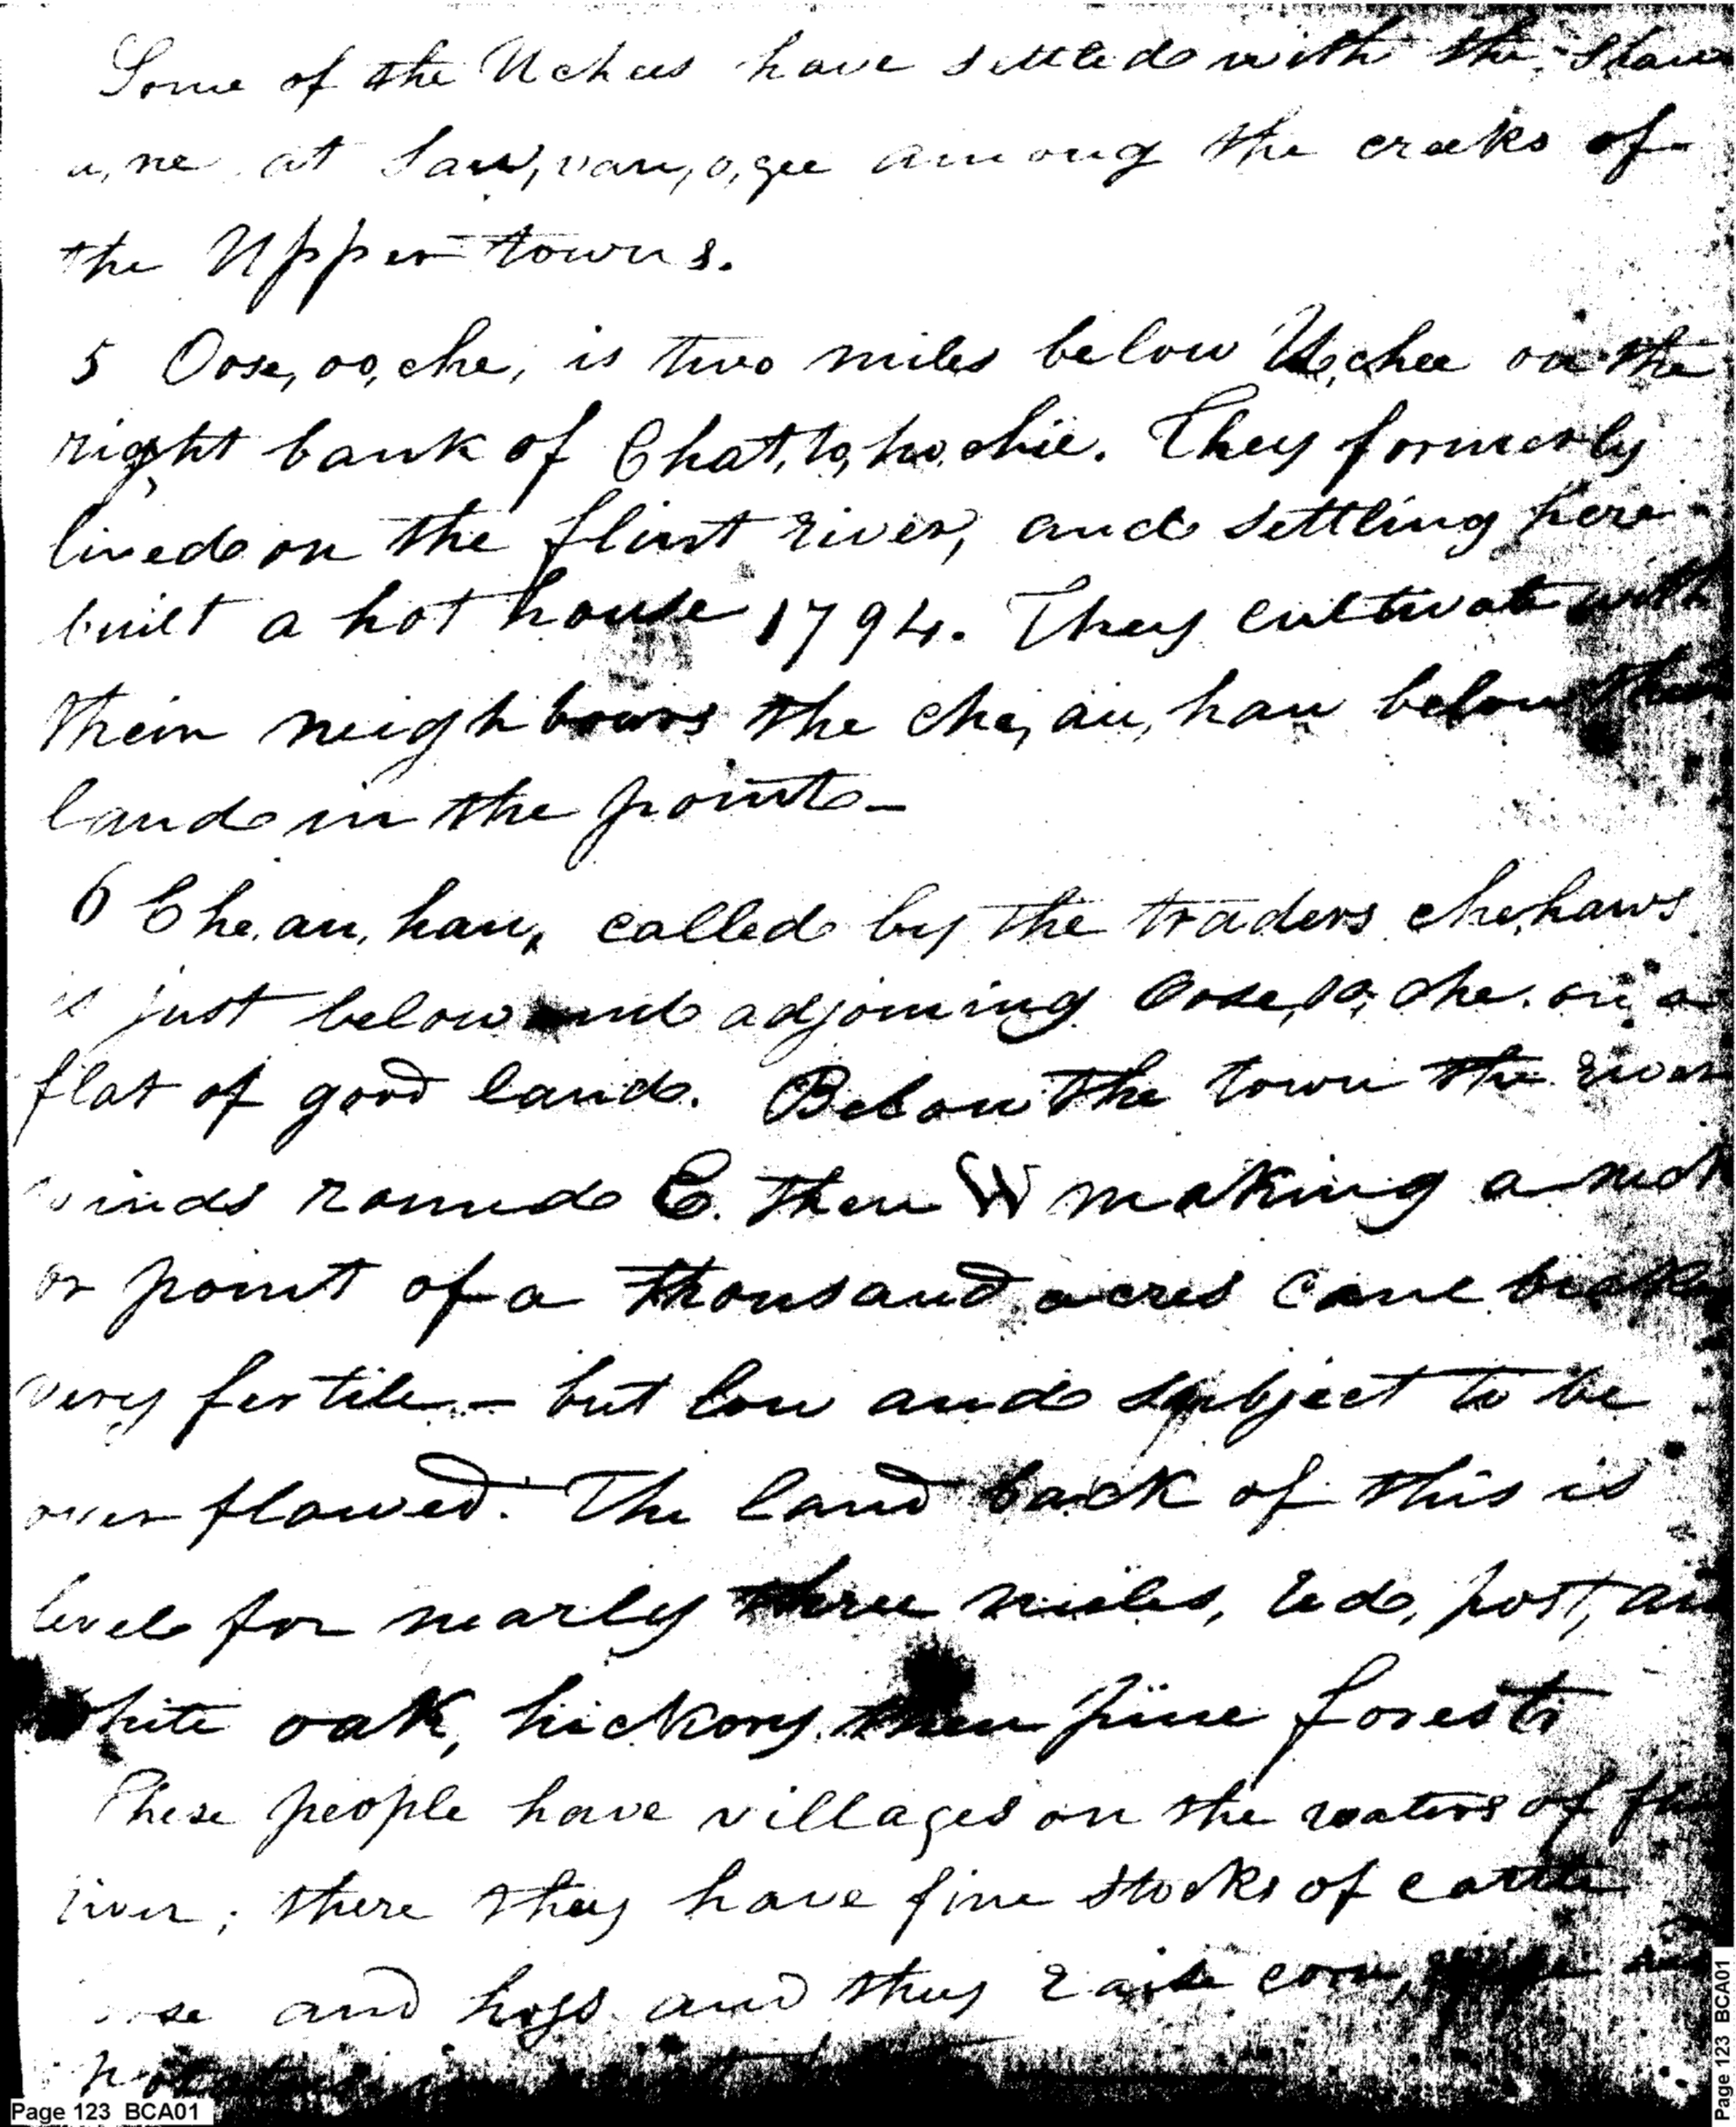 Some of the Uchees have settled with the Shaw
u,ne at Sau,van,o,gee among the creeks of
the Upper towns.
5 Oose,oo,che, is two miles below U,chee on the
right bank of Chat,to,ho,chie. They formerly
lived on the flint river, and settling here
built a hot house 1794. They cultivate with
their neighbours the che,au,hau below them
land in the point-
6 Che,au,hau, called by the traders che,haws
is just below and adjoining Oose,oo,che. on a
flat of good land. Below the town the river
winds round E. then W making a neck
or point of a thousand acres cane brake
very fertile - but low and subject to be
over flowed. The land back of this is
level for nearly three miles, red, post, and
white oak, hickory then pine forest
These people have villages on the waters of
river; there they have fine stocks of cattle
and hogs and they raise corn,
Page 123 BCA01
Page 123 BCA01